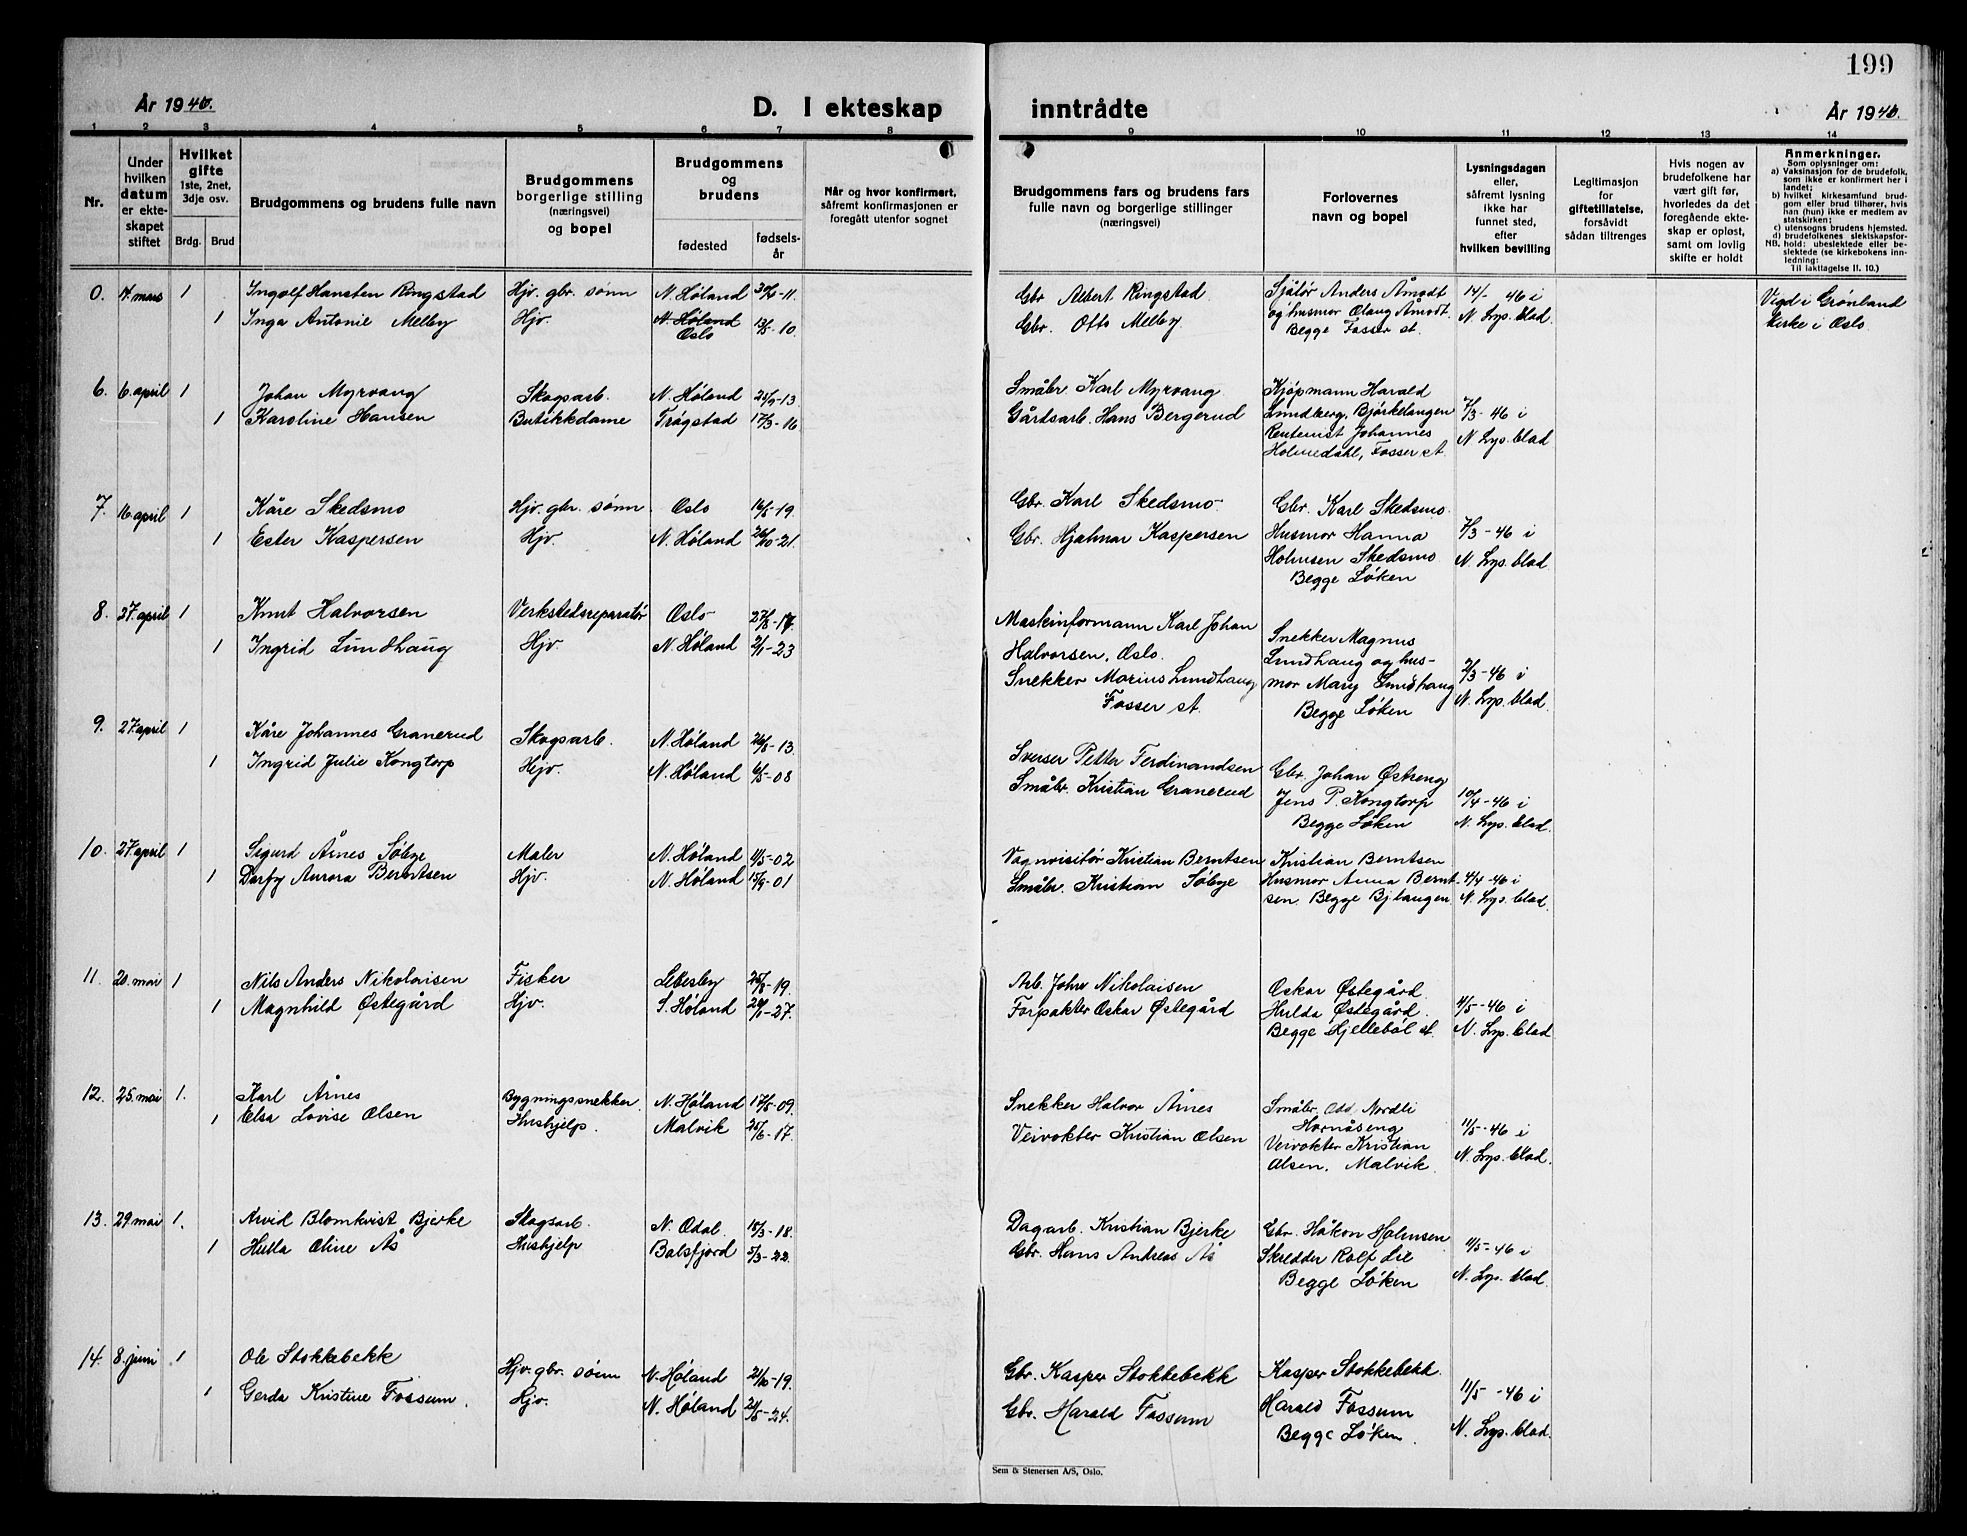 199
År 1946.
D. I ekteskap
inntrådte
År 1946.
1 2 3 4 5 6 7 8 9 10 11 12 13 14
Nr.
Under
hvilken
datum
er ekte-
skapet
stiftet
Hvilket
gifte
1ste, 2net,
3dje osv.
Brdg. Brud
Brudgommens og brudens fulle navn
Brudgommens
borgerlige stilling
(næringsvei)
og bopel
Brudgommens
og
brudens
fødested
fødsels-
år
Når og hvor konfirmert,
såfremt konfirmasjonen er
foregått utenfor sognet
Brudgommens fars og brudens fars
fulle navn og borgerlige stillinger
(næringsvei)
Forlovernes
navn og bopel
Lysningsdagen
eller,
såfremt lysning
ikke har
funnet sted,
efter
hvilken bevilling
Legitimasjon
for
giftetillatelse,
forsåvidt
sådan tiltrenges
Hvis nogen av
brudefolkene har
vært gift før,
hvorledes da det
foregående ekte-
skap er opløst,
samt om lovlig
skifte er holdt
Anmerkninger.
Som oplysninger om:
a) Vaksinasjon for de brudefolk,
som ikke er konfirmert her i
landet;
b) hvilket kirkesamfund brud-
gom eller brud tilhører, hvis
han (hun) ikke er medlem av
statskirken;
c) utensogns brudens hjemsted.
d) brudefolkenes slektskapsfor-
NB. hold: ubeslektede eller be-
slektede (se kirkebokens inn-
ledning:
Til iakttagelse II. 10.)
0. mars 1 Ingolf Hansten Ringstad Hjv. gbr. sønn N. Høland Gbr. Albert Ringstad. Sjåfør Anders Åmodt 14/ -46 i Vigd i Grønland
1 Inga Antonie Melby Hjv. N. Høland 13/5-10 Gbr. Otto Melby. og husmor Olaug Åmodt. N. Lys. blad. Kirke i Oslo
Oslo Begge Fosser st.
6. 6. april 1 Johan Myrvang Skogsarb. N. Høland 21/9-13 Småbr. Karl Myrvang Kjøpmann Harald
1 Karoline Hansen Butikkdame Trøgstad 17/3-16 Gårdsarb. Hans Bergerud Lundberg, Bjørkelangen 7/3-46 i
Rentenist Johannes N. Lys. blad
Holmedahl, Fosser st.
7. 16. april 1 Kåre Skedsmo Hjv. gbr. sønn Oslo 16/5-19. Gbr. Karl Skedsmo. Gbr. Karl Skedsmo.
1 Ester Kaspersen Hjv. N. Høland 26/10-21. Gbr. Hjalmar Kaspersen Husmor Hanna 7/3-46 i
Holmsen Skedsmo N. Lys. blad.
Begge Løken
8. 27. april 1 Knut Halvorsen Verkstedsreparatør Oslo 27/8-17. Maskinformann Karl Johan Snekker Magnus
1 Ingrid Lundhaug Hjv. N. Høland 2/1-23 Halvorsen, Oslo. Lundhaug og hus- 2/3-46 i
Snekker Marius Lundhaug mor Mary Lundhaug N. Lys. blad.
Fosser st. Begge Løken
9. 27. april 1 Kåre Johannes Granerud Skogsarb. N. Høland 26/8-13. Sveiser Petter Ferdinandsen Gbr. Johan Østreng
1 Ingrid Julie Kongtorp Hjv. N. Høland 6/5-08 Småbr. Kristian Granerud Jens P. Kongtorp 10/4-46 i
Begge Løken N. Lys. blad.
10. 27. april 1 Sigurd Årnes Søbye Maler N. Høland 4/5-02 Vognvisitør Kristian Berntsen Kristian Berntsen
1 Aurora Berntsen Hjv. N. Høland 15/9-01 Småbr. Kristian Søbye Husmor Anna Bernt- 4/4-46 i
sen. Begge Bjlangen. N. Lys. blad.
11. 20. mai 1 Nils Anders Nikolaisen Fisker Lebesby 25/8-19. Arb. John Nikolaisen Oskar Østegård.
1 Magnhild Østegård Hjv. S. Høland 24/1-27. Forpakter Oskar Østegård Hulda Østegård. 4/5-46 i
Begge Hjellebøl st. N. Lys. blad
12. 25. mai 1. Karl Årnes Bygningssnekker. N. Høland 17/5-09. Snekker Halvor Årnes Småbr. Odd Nordli
1 Elsa Lovise Olsen Hushjelp. Malvik 25/6-17. Veivokter Kristian Olsen Hornåseng 11/5-46 i
Veivokter Kristian N. Lys. blad.
Olsen, Malvik.
13. 29. mai 1. Arvid Blomkvist Bjerke Skogsarb. N. Odal 15/3-18. Dagarb. Kristian Bjerke Gbr. Håkon Holmsen
1 Hulla Oline Ås Hushjelp Balsfjord 5/3-22. Gbr. Hans Andreas Ås Skredder Rolf Lie 11/5-46 i
Begge Løken N. Lys. blad.
14. 8. juni 1 Ole Stokkebekk Hjv. gbr. sønn N. Høland 21/10-19. Gbr. Kasper Stokkebekk Kasper Stokkebekk
1 Gerda Kristine Fossum. Hjv. N. Høland 21/5-24. Gbr. Harald Fossum Harald Fossum 11/5-46 i
Begge Løken. N. Lys. blad.
Sem & Stenersen A/S, Oslo.